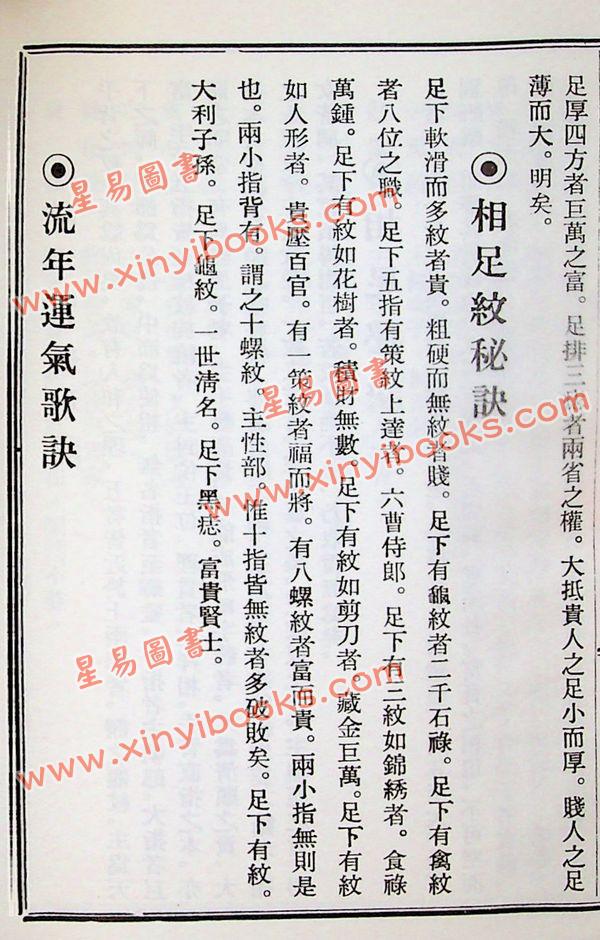 足厚四方者巨萬之富。足排三者兩省之權。大抵貴人之足小而厚。賤人之足
薄而大。明矣。
◉相足紋秘訣
足下軟滑而多紋者貴。粗硬而無紋者賤。足下有龜紋者二千石祿。足下有禽紋
者八位之職。足下五指有策紋上達者。六曹侍郎。足下有三紋如錦綉者。食祿
萬鍾。足下有紋如花樹者。積財無數。足下有紋如剪刀者。藏金巨萬。足下有紋
如人形者。貴壓百官。有一策紋者福而將。有八螺紋者富而貴。兩小指無則是
也。兩小指背有。謂之十螺紋。主性部。惟十指皆無紋者多破敗矣。足下有紋。
大利子孫。足下龜紋。一世清名。足下黑痣。富貴賢士。
◉流年運氣歌訣
星易圖書
www.xinyibooks.com
星易圖書
www.xinyibooks.com
星易圖書
www.xinyibooks.com
星易圖書
www.xinyibooks.com